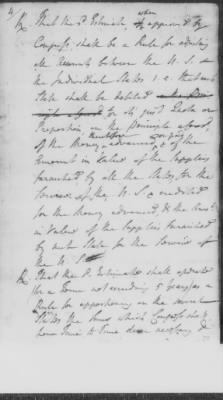 That the sd Estimate, when approved by
Congress, shall be a Rule for adjusting
all Accounts between the U. S. &
the Individual States
State shall be debited
for its just Quota or
Proportion on the Principle afores.d
of the Money advanced, & of the
Amount in Value of the Supplies
furnished by all the States, for the
Service of the U. S. & credited
for the Money advanced, & the Amt
in Value of the Supplies furnished
by such State for the Service of
the U. S.
That the sd Estimate shall operate
for a Term not exceeding 5 Years as a
Rule for apportioning on the several
States the Sums which Congress shall
from Time to Time deem necessary &